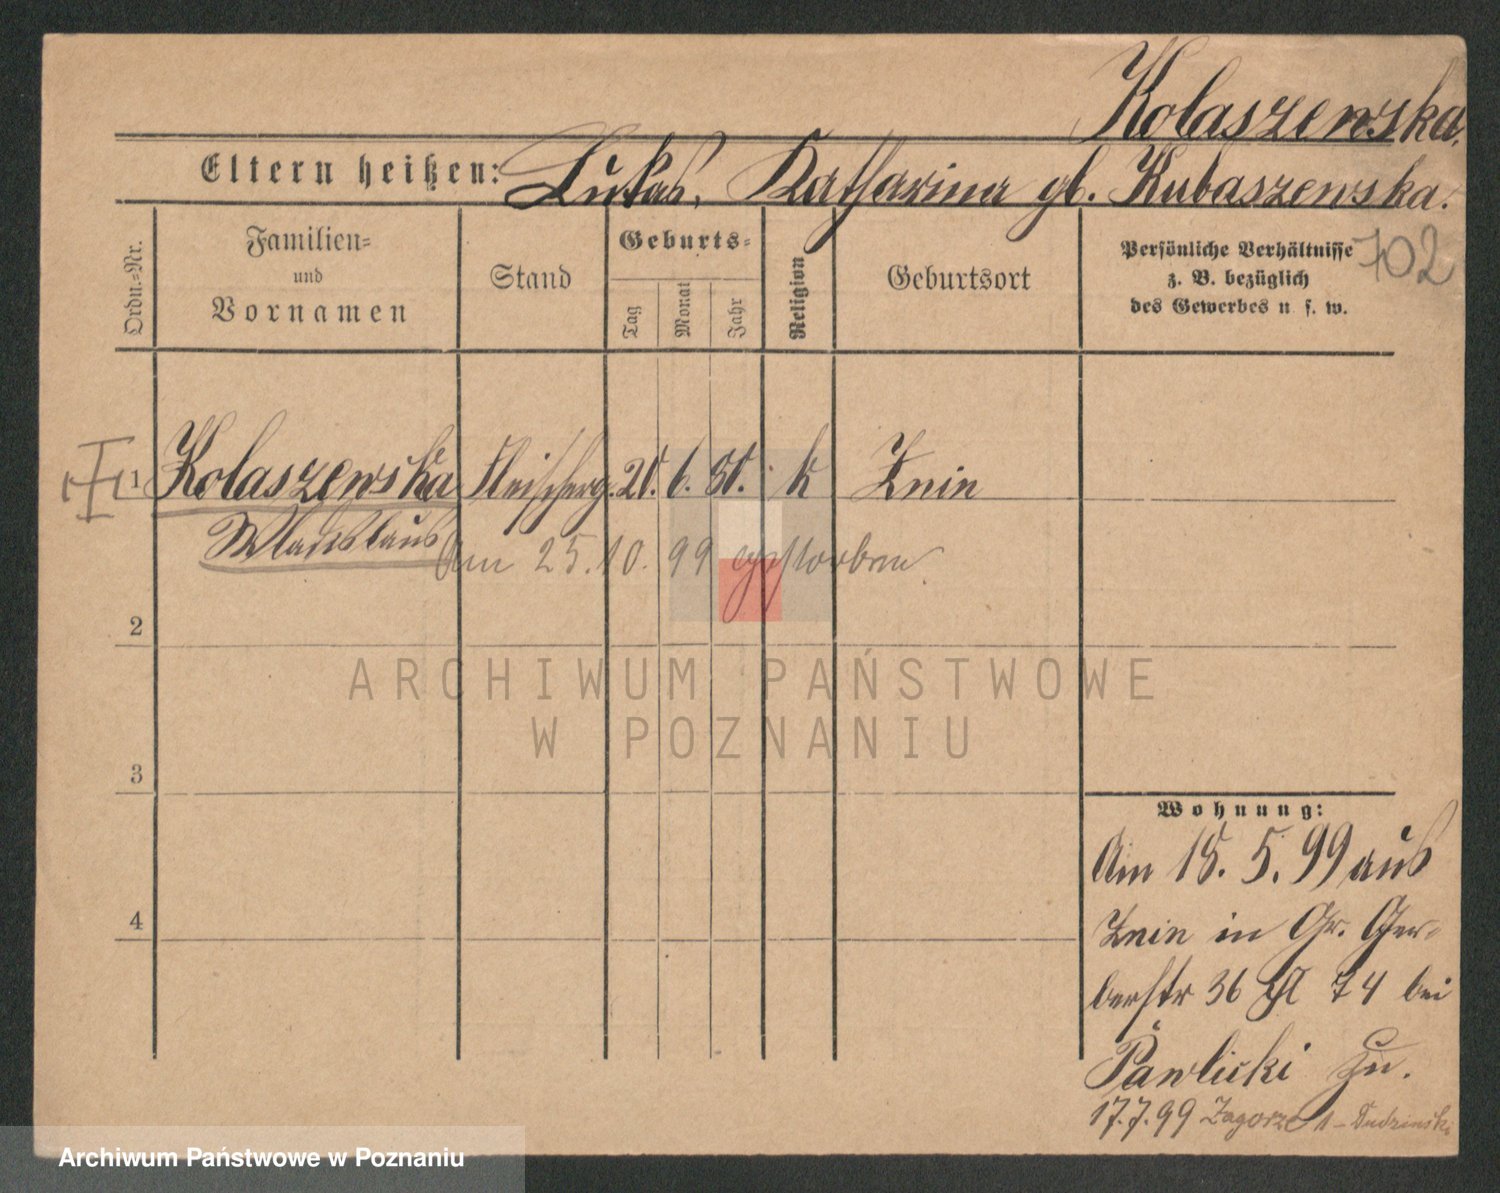 Kolaszewska.
Eltern heißen: Lukas, Katharina gb. Kubaszewska.
Ordn.-Nr.
Familien-
und
Vornamen
Stand
Geburts-
Tag
Monat
Jahr
Religion
Geburtsort
Persönliche Verhältnisse
z. B. bezüglich
des Gewerbes u. s. w.
702
1 Kolaszewska Fleischerg. 20. 6. 80. k Znin
Wladislaus
Am 25.10.99 gestorben.
2
3
4
Wohnung:
Am 15. 5. 99 aus
Znin in Gr. Ger-
berstr 36 74 bei
Pawlicki zu.
17.7.99 Zagorze 1 - Dudzinski
ARCHIWUM PAŃSTWOWE
W POZNANIU
Archiwum Państwowe w Poznaniu